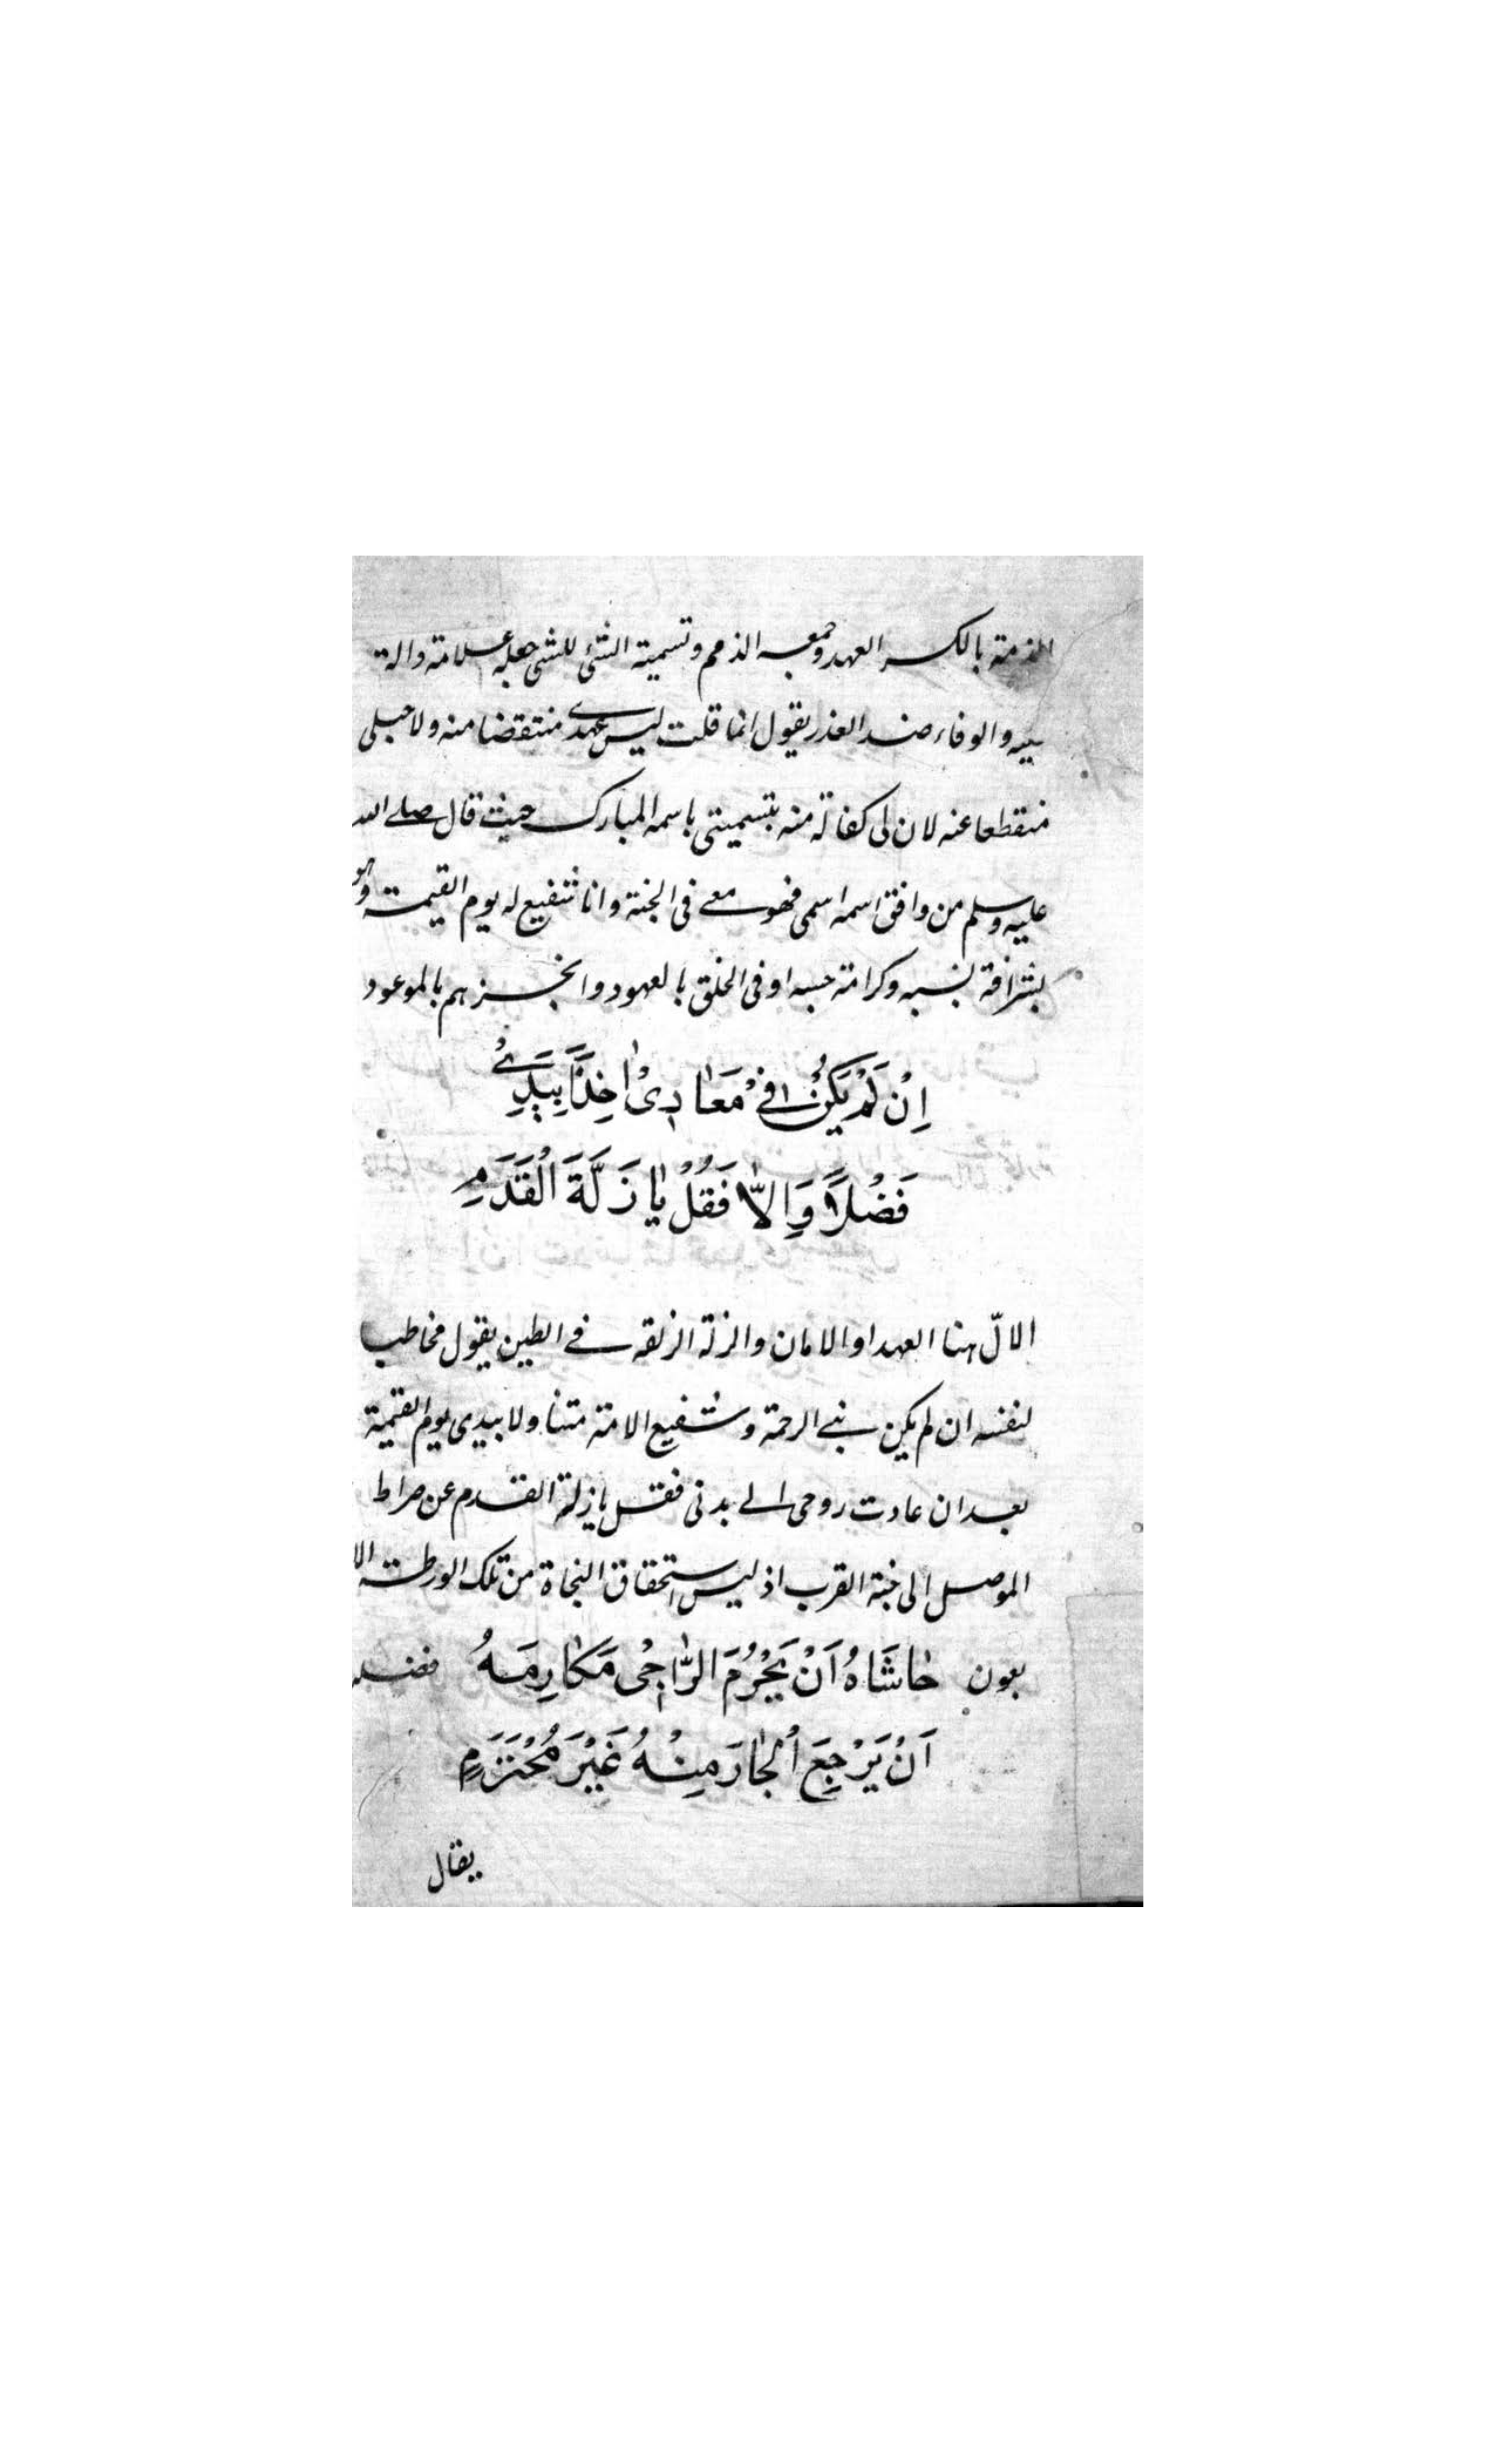 الذمة بالكسر العهد وجمعه الذمم وتسمية الشئ للشئ جعله علامة دالة
عليه والوفاء ضد الغدر يقول انما قلت ليس عهدى منتقضا منه ولا حبلى
منقطعا عنه لان لى كفالة منه بتسميتى باسمه المبارك حيث قال صلى الله
عليه وسلم من وافق اسمه اسمى فهو معى فى الجنة وانا شفيع له يوم القيمة وهو
بشرافة نسبه وكرامة حسبه اوفى الخلق بالعهود وانجزهم بالموعود
اِنْ لَمْ يَكُنْ فِىْ مَعَادِىْ اٰخِذًا بِيَدِىْ
فَضْلًا وَاِلَّا فَقُلْ يَا زَلَّةَ الْقَدَمِ
الالّ هنا العهد او الامان والزلة الزلقة فى الطين يقول مخاطبا
لنفسه ان لم يكن نبى الرحمة وشفيع الامة متناولا بيدى يوم القيمة
بعد ان عادت روحى الى بدنى فقل يا زلة القدم عن صراط
الموصل الى جنة القرب اذ ليس استحقاق النجاة من تلك الورطة الا
بعون فضله
حَاشَاهُ اَنْ يَحْرُمَ الرَّاجِىْ مَكَارِمَهُ
اَنْ يَرْجِعَ الْجَارَ مِنْهُ غَيْرَ مُحْتَرَمِ
يقال